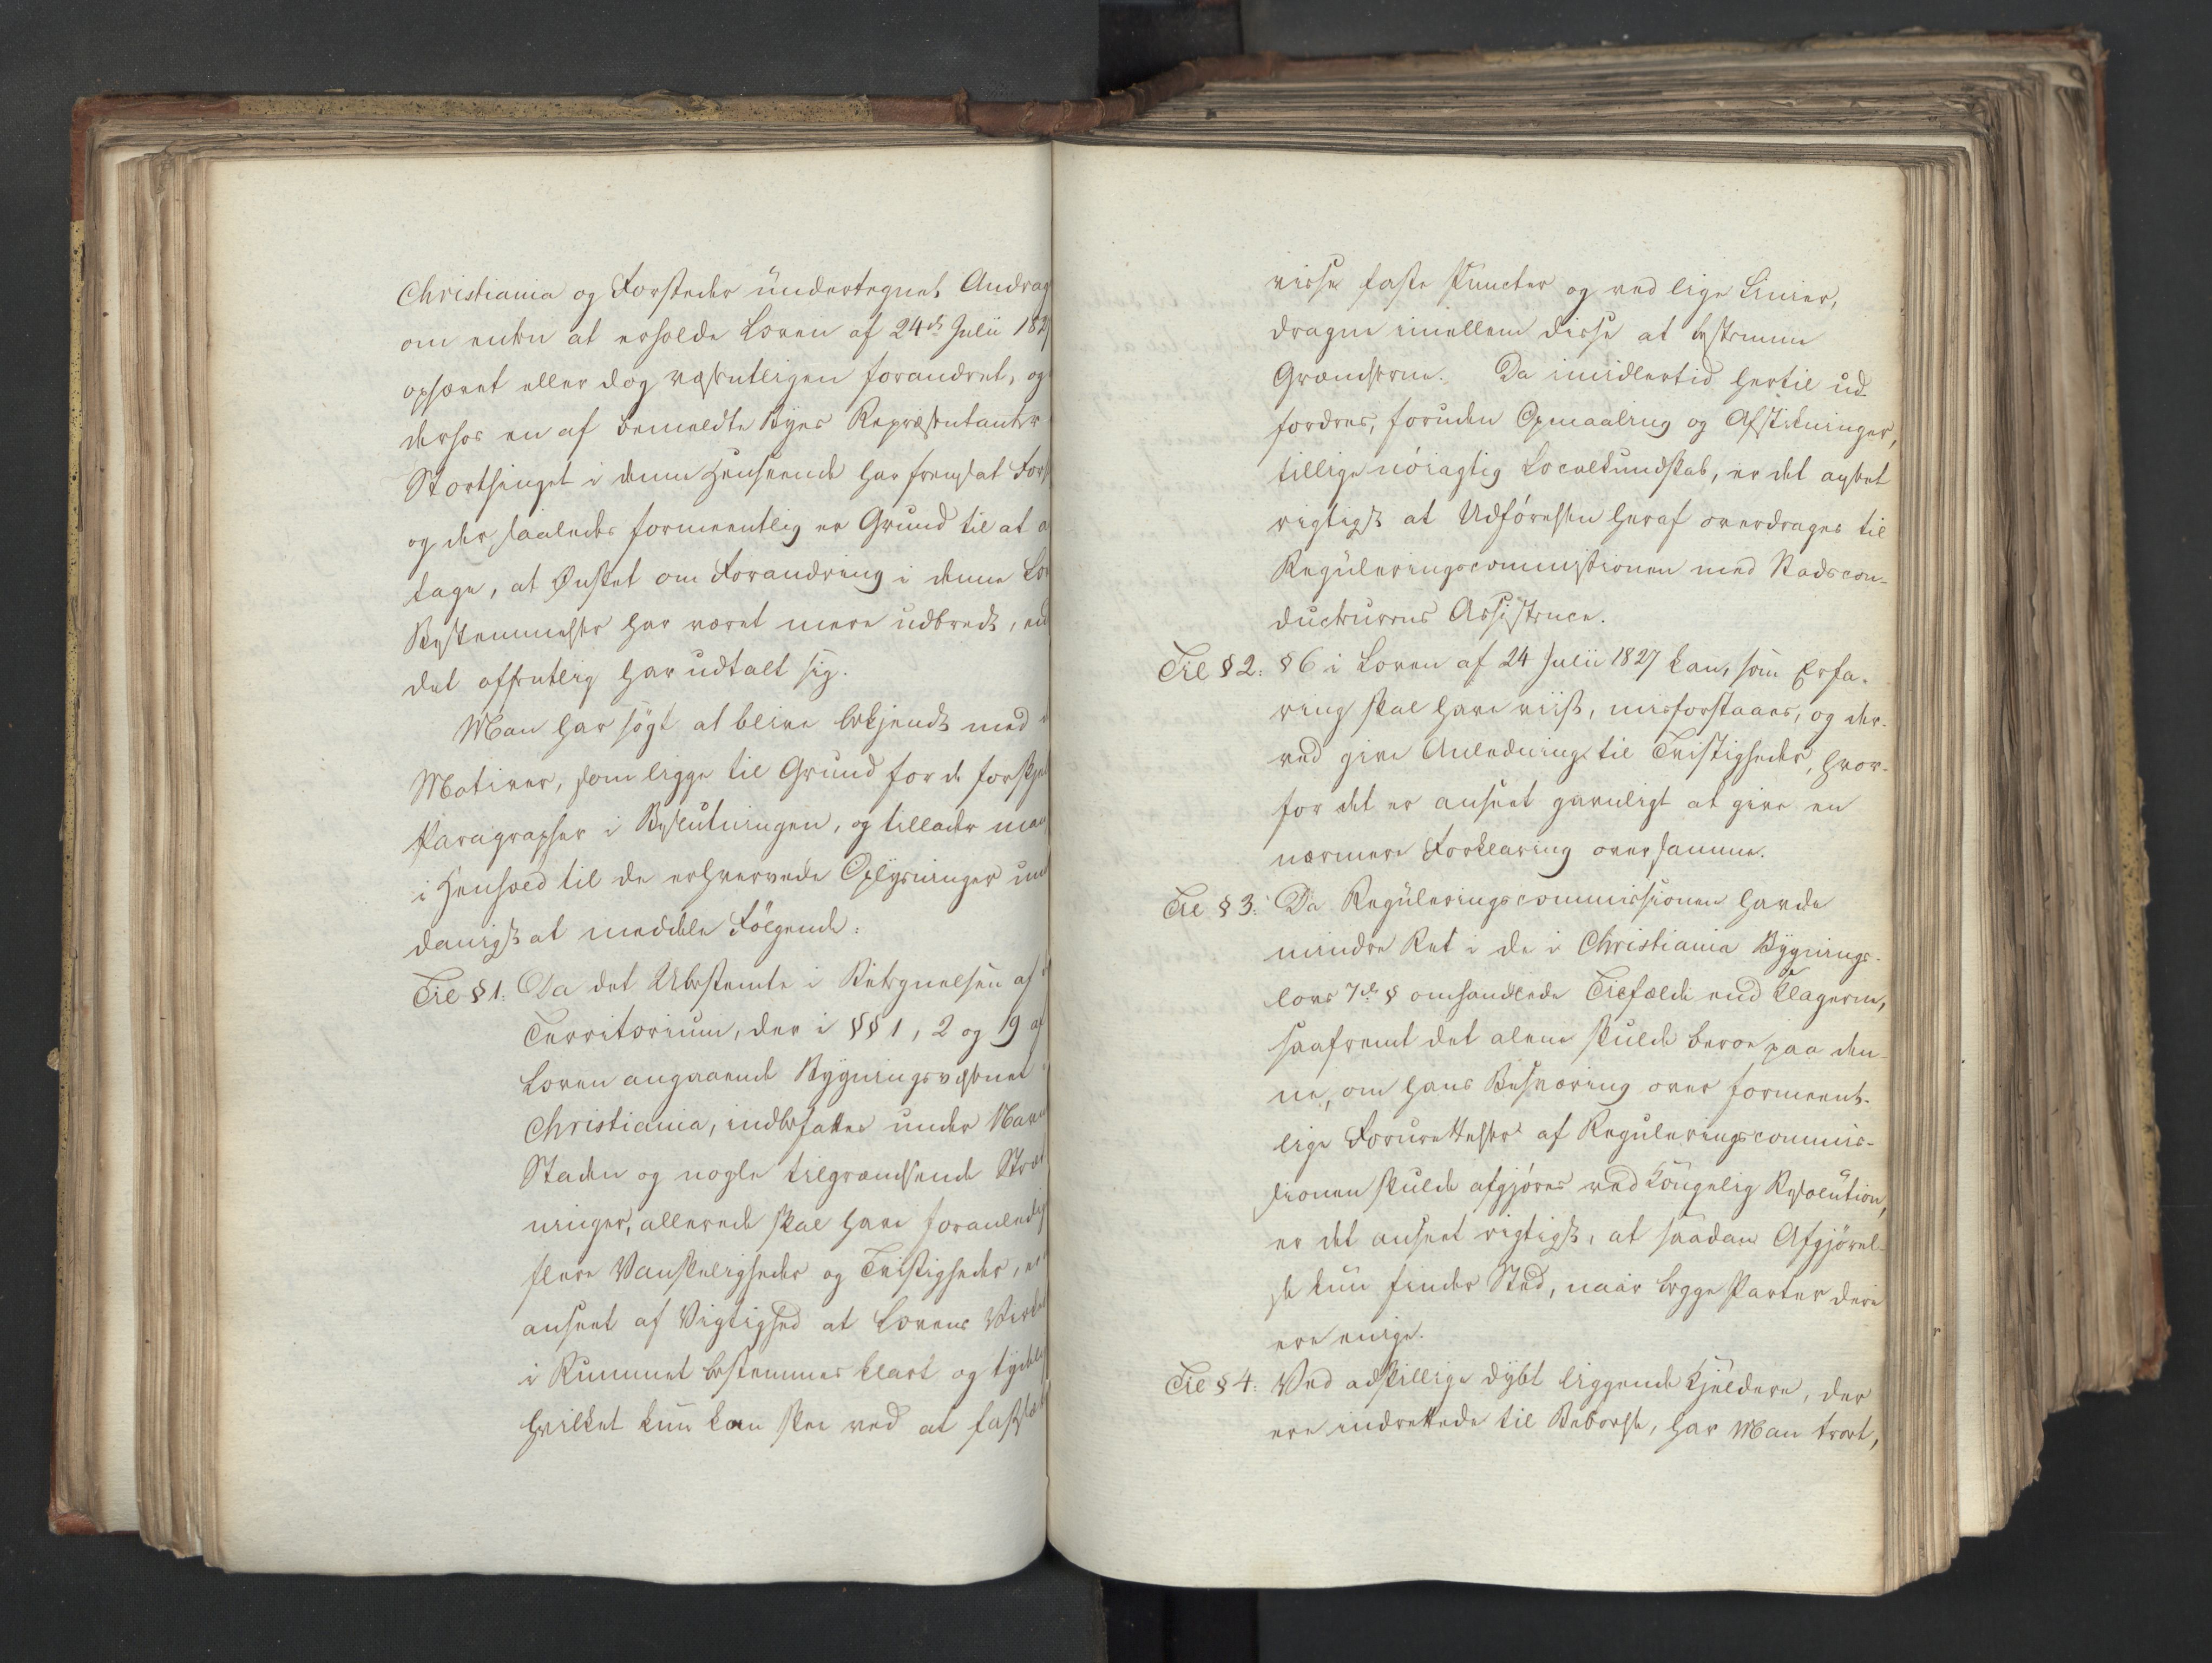 Christiania og Forstæder undertegnet Andrag
om enten at erholde Loven af 24de Julii 1827
ophævet eller dog væsentligen forandret, og
derhos en af bemeldte Byes Repræsentanter
Storthinget i denne Henseende har fremsat Fors
og der saaledes formeentlig er Grund til at a
tage, at Ønsket om Forandring i denne Lo
Bestemmelser har været mere udbredt, end
det offentlig har udtalt sig.
Man har søgt at blive bekjendt med
Motiver, som ligge til Grund for de forskjel
Paragrapher i Beslutningen, og tillader man
i Henhold til de erhvervede Oplysninger und
danigst at meddele Følgende:
Til § 1. Da det Ubestemte i Betegnelsen af
Territorium, der i §§ 1, 2 og 19 af
Loven angaaende Bygningsvæsenet
Christiania, indbefattes under Navn
Staden og nogle tilgrændsende Stræk
ninger, allerede skal have foranledig
flere Vanskeligheder og Tvistigheder, er
anseet af Vigtighed at Lovens Virke
i Rummet bestemmes klart og tydelig
hvilket kun kan skee ved at fastsæt
visse faste Puncter og ved lige Linier,
dragne imellem disse at bestemme
Grændserne. Da imidlertid hertil ud-
fordres, foruden Opmaaling og Afstikninger,
tillige nöiagtig Localkundskab, er det agtet
rigtigst at Udførelsen heraf overdrages til
Reguleringscommissionen med Stadscon-
ducteurens Assistence.
Til § 2: § 6 i Loven af 24 Julii 1827 kan, som Erfa-
ring skal have viist, misforstaaes, og der-
ved give Anledning til Tvistigheder, hvor-
for det er anseet gavnligt at give en
nærmere Forklaring over samme.
Til § 3: Da Reguleringscommissionen havde
mindre Ret i de i Christiania Bygnings-
lovs 7de § omhandlede Tilfælde end Klagerne,
saafremt det alene skulde beroe paa den-
ne, om hans Besværing over formeent-
lige Forurettelser af Reguleringscommis-
sionen skulde afgjøres ved Kongelig Resolution,
er det anseet rigtigst, at saadan Afgjørel-
se kun finder Sted, naar begge Parter deri
ere enige.
Til § 4: Ved adskillige dybt liggende Kjeldere, der
ere indrettede til Beboelse, har Man troet,